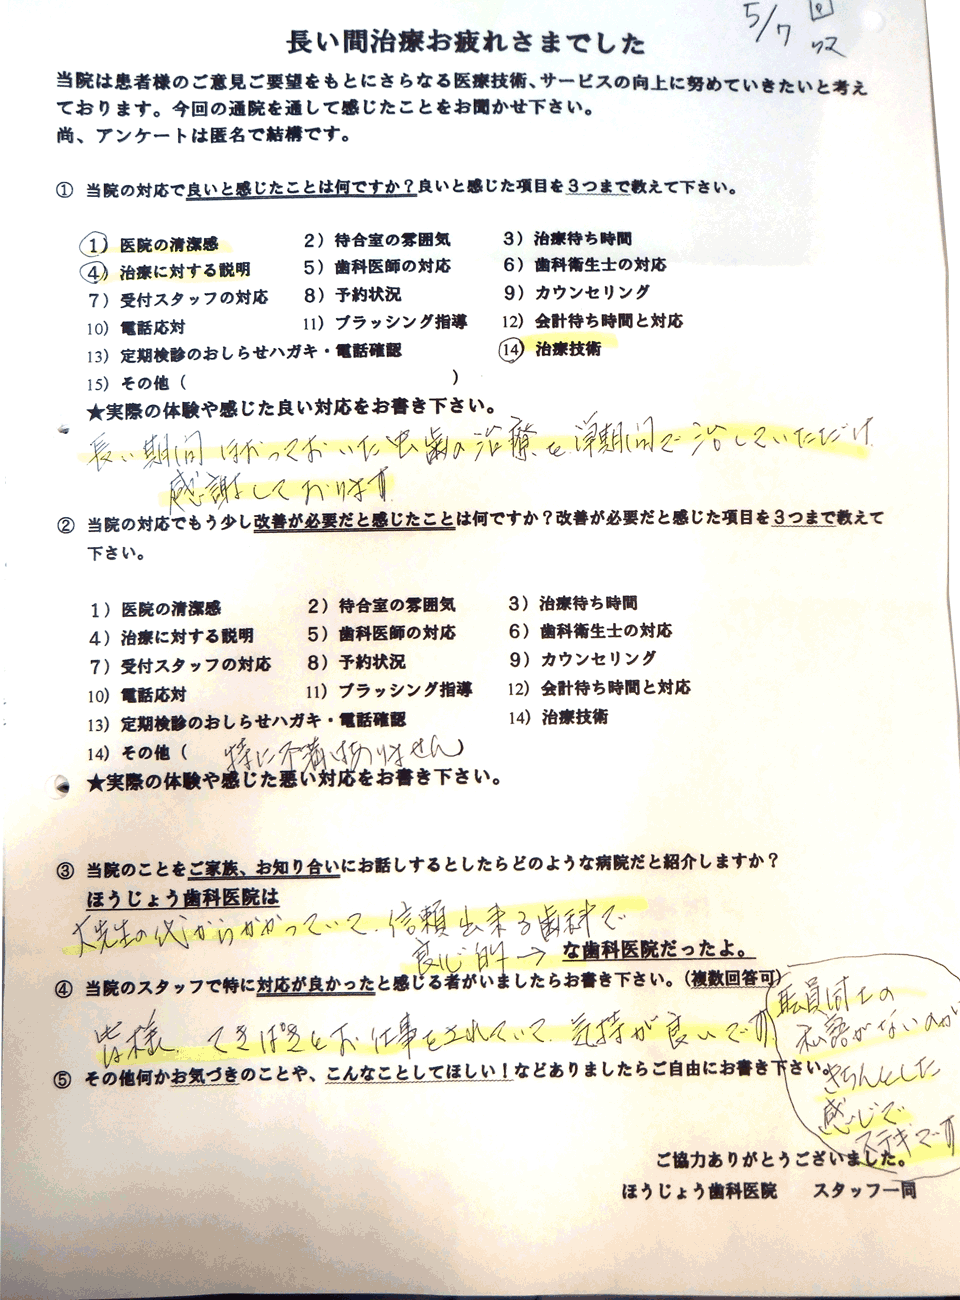 5/7
長い間治療お疲れさまでした
当院は患者様のご意見ご要望をもとにさらなる医療技術、サービスの向上に努めていきたいと考え
ております。今回の通院を通して感じたことをお聞かせ下さい。
尚、アンケートは匿名で結構です。
① 当院の対応で良いと感じたことは何ですか？良いと感じた項目を３つまで教えて下さい。
1) 医院の清潔感 2) 待合室の雰囲気 3) 治療待ち時間
4) 治療に対する説明 5) 歯科医師の対応 6) 歯科衛生士の対応
7) 受付スタッフの対応 8) 予約状況 9) カウンセリング
10) 電話応対 11) ブラッシング指導 12) 会計待ち時間と対応
13) 定期検診のおしらせハガキ・電話確認 14) 治療技術
15) その他（ ）
★実際の体験や感じた良い対応をお書き下さい。
長い期間 ほおっておいた虫歯の治療を 短期間で 治していただけ
感謝しております
② 当院の対応でもう少し改善が必要だと感じたことは何ですか？改善が必要だと感じた項目を３つまで教えて
下さい。
1) 医院の清潔感 2) 待合室の雰囲気 3) 治療待ち時間
4) 治療に対する説明 5) 歯科医師の対応 6) 歯科衛生士の対応
7) 受付スタッフの対応 8) 予約状況 9) カウンセリング
10) 電話応対 11) ブラッシング指導 12) 会計待ち時間と対応
13) 定期検診のおしらせハガキ・電話確認 14) 治療技術
14) その他（ 特に不満はありません ）
★実際の体験や感じた悪い対応をお書き下さい。
③ 当院のことをご家族、お知り合いにお話しするとしたらどのような病院だと紹介しますか？
ほうじょう歯科医院は
大先生の代からかかっていて、信頼出来る歯科で
良心的 → な歯科医院だったよ。
④ 当院のスタッフで特に対応が良かったと感じる者がいましたらお書き下さい。（複数回答可）
皆様、てきぱきとお仕事をされていて、気持が良いです
職員同士の
私語がないのが
きちんとした
感じで
ステキです
⑤ その他何かお気づきのことや、こんなことしてほしい！などありましたらご自由にお書き下さい。
ご協力ありがとうございました。
ほうじょう歯科医院 スタッフ一同